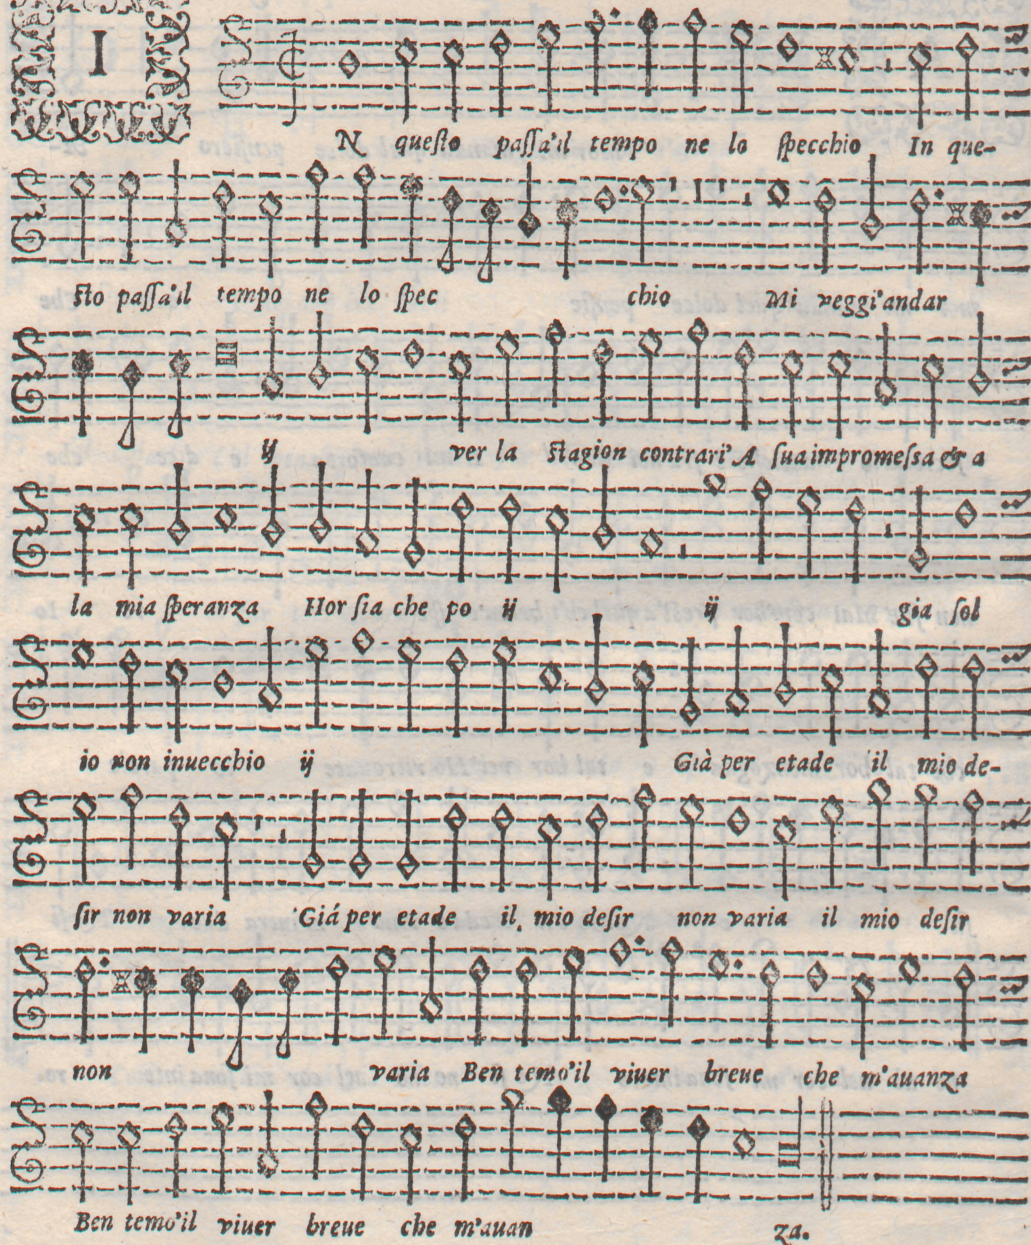 I
N questo passa'il tempo ne lo specchio In que-
sto passa'il tempo ne lo spec chio Mi veggi'andar
ij ver la stagion contrari'A sua impromessa & a
la mia speranza Hor sia che po ij ij gia sol
io non inuecchio ij Già per etade il mio de-
sir non varia Giá per etade il mio desir non varia il mio desir
non varia Ben temo'il viuer breue che m'auanza
Ben temo'il viuer breue che m'auan za.